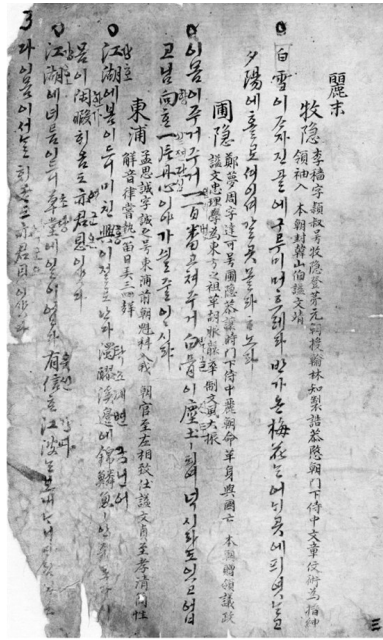 麗末
牧隱 李穡字穎叔号牧隱登第元朝授翰林知製誥恭愍朝門下侍中文章伎術爲搢紳
領袖入 本朝封韓山伯謚文靖
白雪이 ᄌᆞ자진 골에 구루미 머흐레라 반가온 梅花ᄂᆞᆫ 어ᄂᆡ 곳에 픠엿ᄂᆞᆫ고
夕陽에 홀로 셔이셔 갈 곳 몰라 ᄒᆞ노라
圃隱 鄭夢周字達可号圃隱恭愍時門下侍中麗朝命革身與國亡 本朝贈領議政
謚文忠理學爲東方之祖
이 몸이 주거 주거 一百番 고쳐 주거 白骨이 塵土ㅣ 되여 넉시라도 잇고 업
고 님 向ᄒᆞᆫ 一片丹心이야 가싈 줄이 이시랴
東浦 孟思誠字誠之号東浦前朝魁科入我 朝官至左相致仕謚文貞至孝清簡性
解音律常執笛日弄三四聲
江湖에 봄이 드니 미친 興이 절로 난다 濁醪溪邊에 錦鱗魚ㅣ 안주로다 이
몸이 閑暇ᄒᆡ옴도 亦君恩이샷다
江湖에 녀름이 드니 草堂에 일이 업다 有信ᄒᆞᆫ 江波ᄂᆞᆫ 보내ᄂᆞ니
다 이 몸이 서ᄂᆞᆯᄒᆡ옴도 亦君恩이샷다